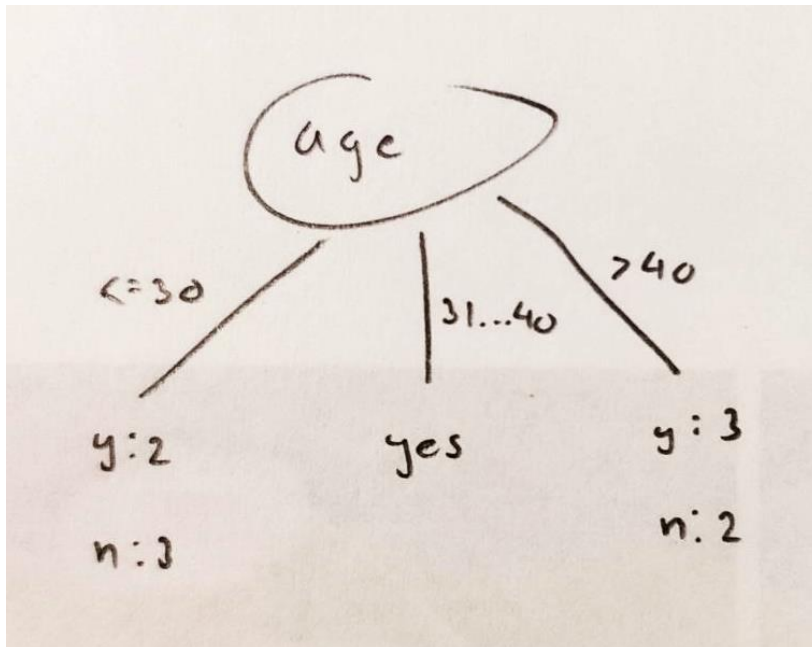 age
<=30
31...40
>40
y:2
yes
y:3
n:3
n:2